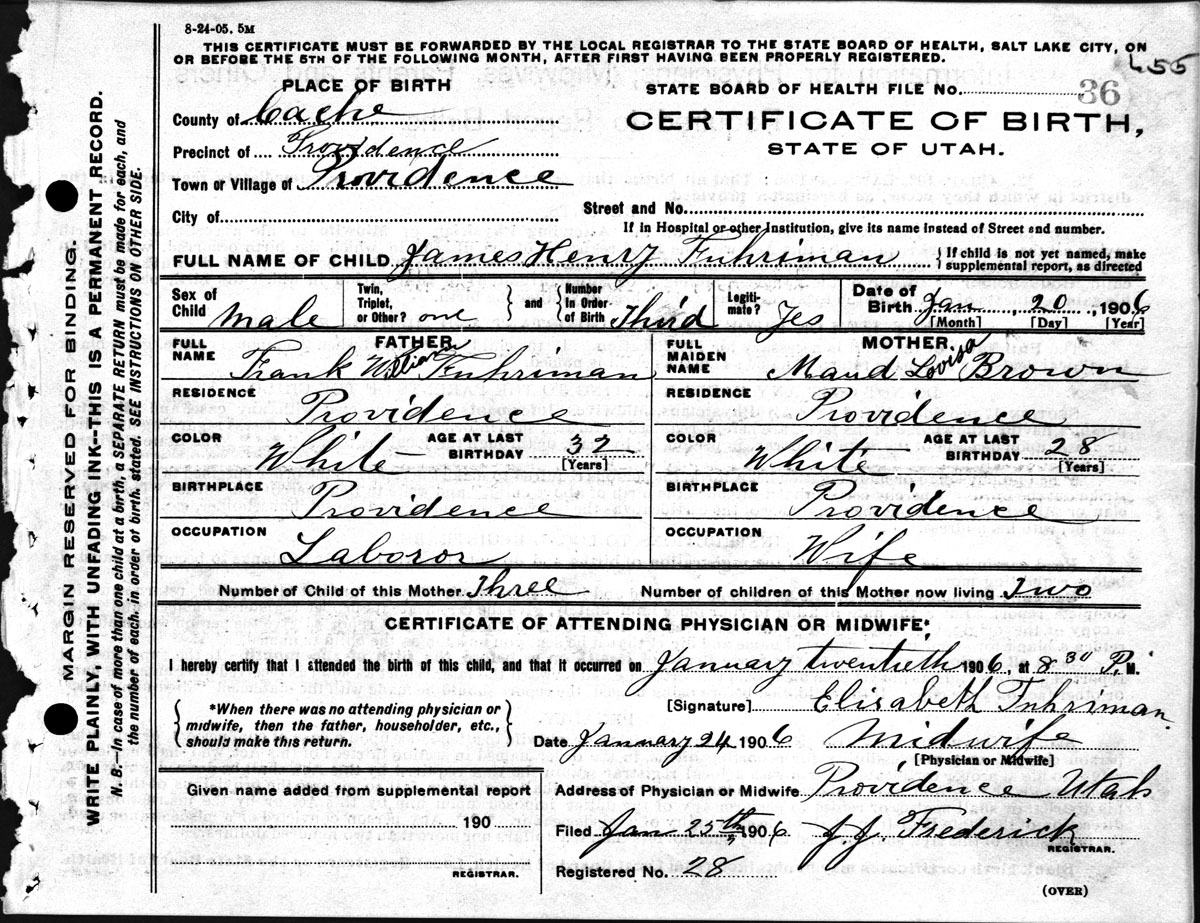 8-24-05. 5M
THIS CERTIFICATE MUST BE FORWARDED BY THE LOCAL REGISTRAR TO THE STATE BOARD OF HEALTH, SALT LAKE CITY, ON
OR BEFORE THE 5TH OF THE FOLLOWING MONTH, AFTER FIRST HAVING BEEN PROPERLY REGISTERED.
455
PLACE OF BIRTH
STATE BOARD OF HEALTH FILE No. 36
County of Cache
CERTIFICATE OF BIRTH,
STATE OF UTAH.
Precinct of Providence
Town or Village of Providence
City of
Street and No.
If in Hospital or other Institution, give its name instead of Street and number.
FULL NAME OF CHILD James Henry Fuhriman { If child is not yet named, make
supplemental report, as directed
Sex of Child Male Twin, Triplet, or Other? one } and { Number In Order of Birth Third Legitimate? Yes Date of Birth Jan 20, 1906
[Month] [Day] [Year]
FATHER MOTHER
FULL NAME Frank William Fuhriman FULL MAIDEN NAME Maud Lovisa Brown
RESIDENCE Providence RESIDENCE Providence
COLOR White AGE AT LAST BIRTHDAY 32 [Years] COLOR White AGE AT LAST BIRTHDAY 28 [Years]
BIRTHPLACE Providence BIRTHPLACE Providence
OCCUPATION Laboror OCCUPATION Wife
Number of Child of this Mother Three Number of children of this Mother now living Two
CERTIFICATE OF ATTENDING PHYSICIAN OR MIDWIFE*
I hereby certify that I attended the birth of this child, and that it occurred on January twentieth 1906, at 8 30 P. M.
[Signature] Elisabeth Fuhriman
{ *When there was no attending physician or
midwife, then the father, householder, etc.,
should make this return. }
Date January 24 1906 Midwife
[Physician or Midwife]
Given name added from supplemental report
190
REGISTRAR.
Address of Physician or Midwife Providence Utah
Filed Jan 25th, 1906 J. J. Frederick
REGISTRAR.
Registered No. 28
(OVER)
MARGIN RESERVED FOR BINDING.
WRITE PLAINLY, WITH UNFADING INK--THIS IS A PERMANENT RECORD.
N. B.--In case of more than one child at a birth, a SEPARATE RETURN must be made for each, and
the number of each. in order of birth. stated. SEE INSTRUCTIONS ON OTHER SIDE.